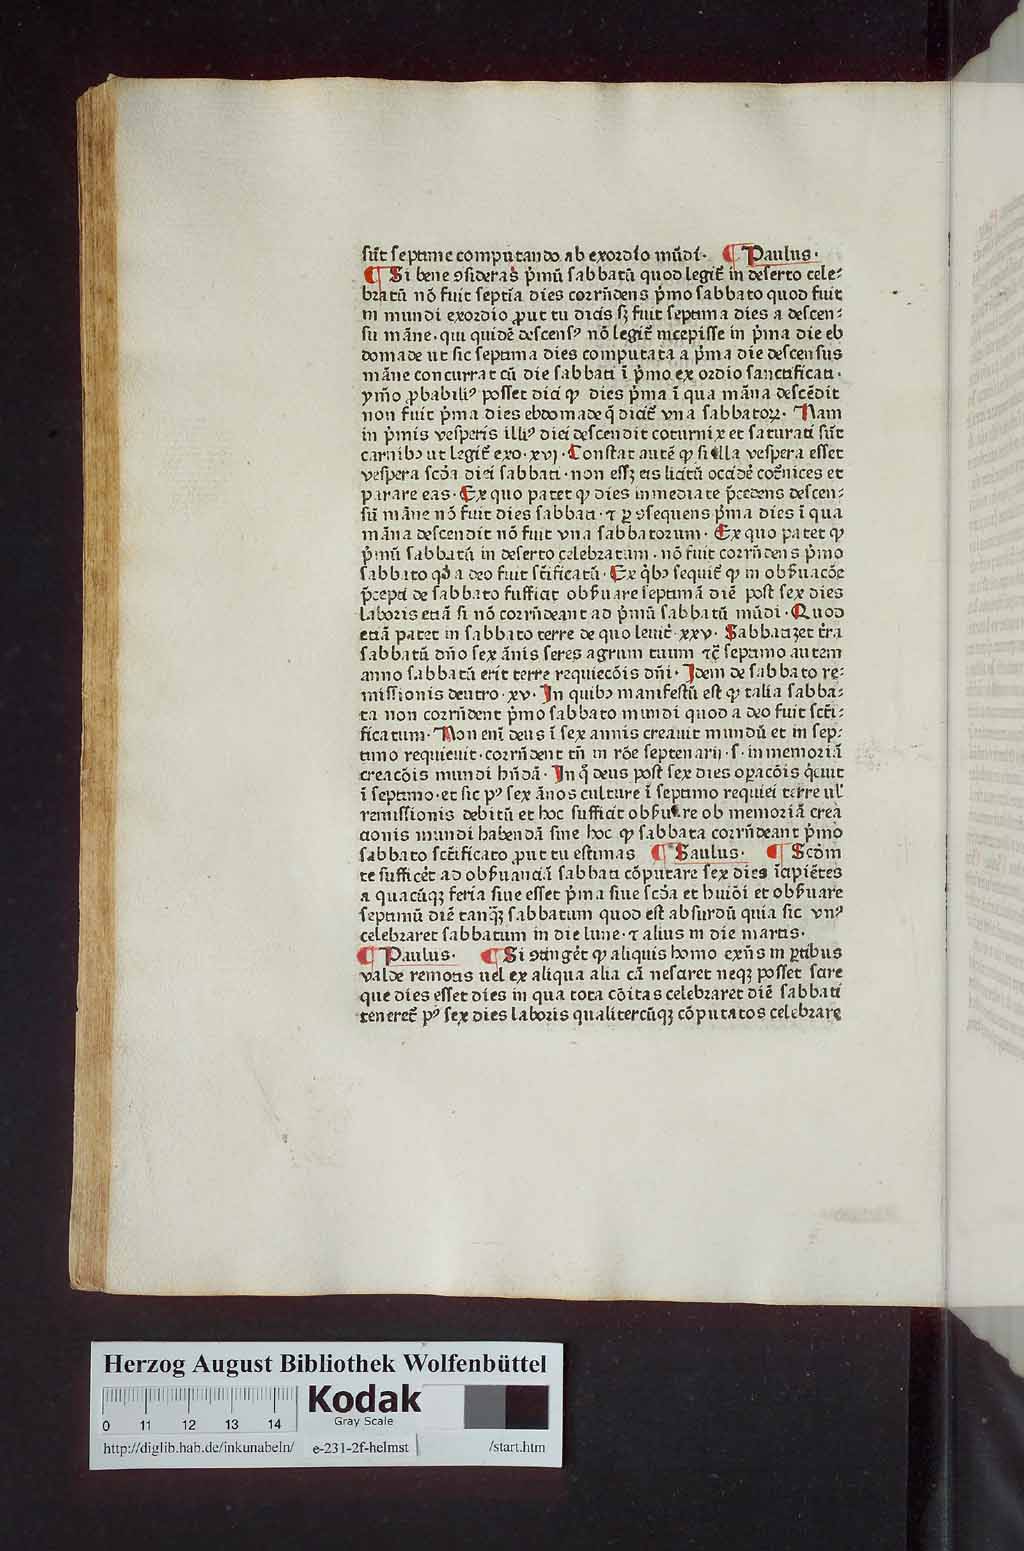 sūt septime computando ab exordio mūdi· ¶ Paulus·
¶ Si bene ꝯsideras p̄mū sabbatū quod legit̄ in deserto cele⸗
bratū nō fuit septīa dies corrn̄dens p̄mo sabbato quod fuit
in mundi exordio ꝓut tu dicis sꝫ fuit septima dies a descen⸗
su māne·qui quidē descensꝰ nō legit̄ incepisse in p̄ma die eb
domade ut sic septima dies computata a p̄ma die descensus
māne concurrat cū die sabbati ī p̄mo ex ordio sanctificati·
ymo͂ ꝓbabiliꝰ posset dici ꝙ dies p̄ma ī qua māna descēdit
non fuit p̄ma dies ebdomade q̄ dicit̄ vna sabbatoꝝ· Nam
in p̄mis vesperis illiꝰ diei descendit coturnix et saturati sūt
carnibꝫ ut legit̄ exo·xvj·Constat autē ꝙ si illa vespera esset
vespera scd̄a diei sabbati·non essꝫ eis licitū occidē cot̄nices et
parare eas·Ex quo patet ꝙ dies inmediate p̄cedens descen⸗
sū māne nō fuit dies sabbati·⁊ ꝑ ꝯsequens p̄ma dies ī qua
māna descendit nō fuit vna sabbatorum· Ex quo patet ꝙ
p̄mū sabbatū in deserto celebratum·nō fuit corrn̄dens p̄mo
sabbato qd̄ a deo fuit sc̄tificatū·Ex q̄bꝫ sequit̄ ꝙ in obẜuacōe
p̄cepti de sabbato sufficit obẜuare septimā diē post sex dies
laboris etiā si nō corrn̄deant ad p̄mū sabbatū mūdi·Quod
etiā patet in sabbato terre de quo leuit̄·xxv· Sabbatizet t̄ra
sabbatū dn̄o sex ānis seres agrum tuum ⁊c̄ septimo autem
anno sabbatū erit terre requiecōis dn̄i· Idem de sabbato re⸗
missionis deutro·xv·In quibꝫ manifestū est ꝙ talia sabba⸗
ta non corrn̄dent p̄mo sabbato mundi quod a deo fuit sc̄ti⸗
ficatum· Non eni̇̄ deus ī sex annis creauit mundū et in sep⸗
timo requieuit·corrn̄dent tn̄ in rōe septenarij·s·in memoriā
creacōis mundi hn̄dā·In q̄ deus post sex dies oꝑacōis q̄euit
ī septimo·et sic pꝰ sex ānos culture ī septimo requiei terre ul̄
remissionis debitū et hoc sufficit obẜuare ob memoriā crea
cionis mundi habendā sine hoc ꝙ sabbata corrn̄deant p̄mo
sabbato sc̄tificato ꝓut tu estimas ¶ Saulus· ¶ Scd̄m
te sufficet̄ ad obẜuanciā sabbati cōputare sex dies īcipiētes
a quacūqꝫ feria siue esset p̄ma siue scd̄a et huiōi et obẜuare
septimū diē tanqꝫ̄ sabbatum quod est absurdū quia sic vnꝰ
celebraret sabbatum in die lune·⁊ alius in die martis·
¶ Paulus· ¶ Si ꝯtinget̄ ꝙ aliquis homo exn̄s in ꝑtibus
valde remotis uel ex aliqua alia cā nesciret neqꝫ posset scire
que dies esset dies in qua tota cōitas celebraret diē sabbati
teneret̄ pꝰ sex dies laboris qualitercūqꝫ cōputatos celebrare
Herzog August Bibliothek Wolfenbüttel
Kodak
Gray Scale
0 11 12 13 14
http://diglib.hab.de/inkunabeln/ e-231-2f-helmst /start.htm